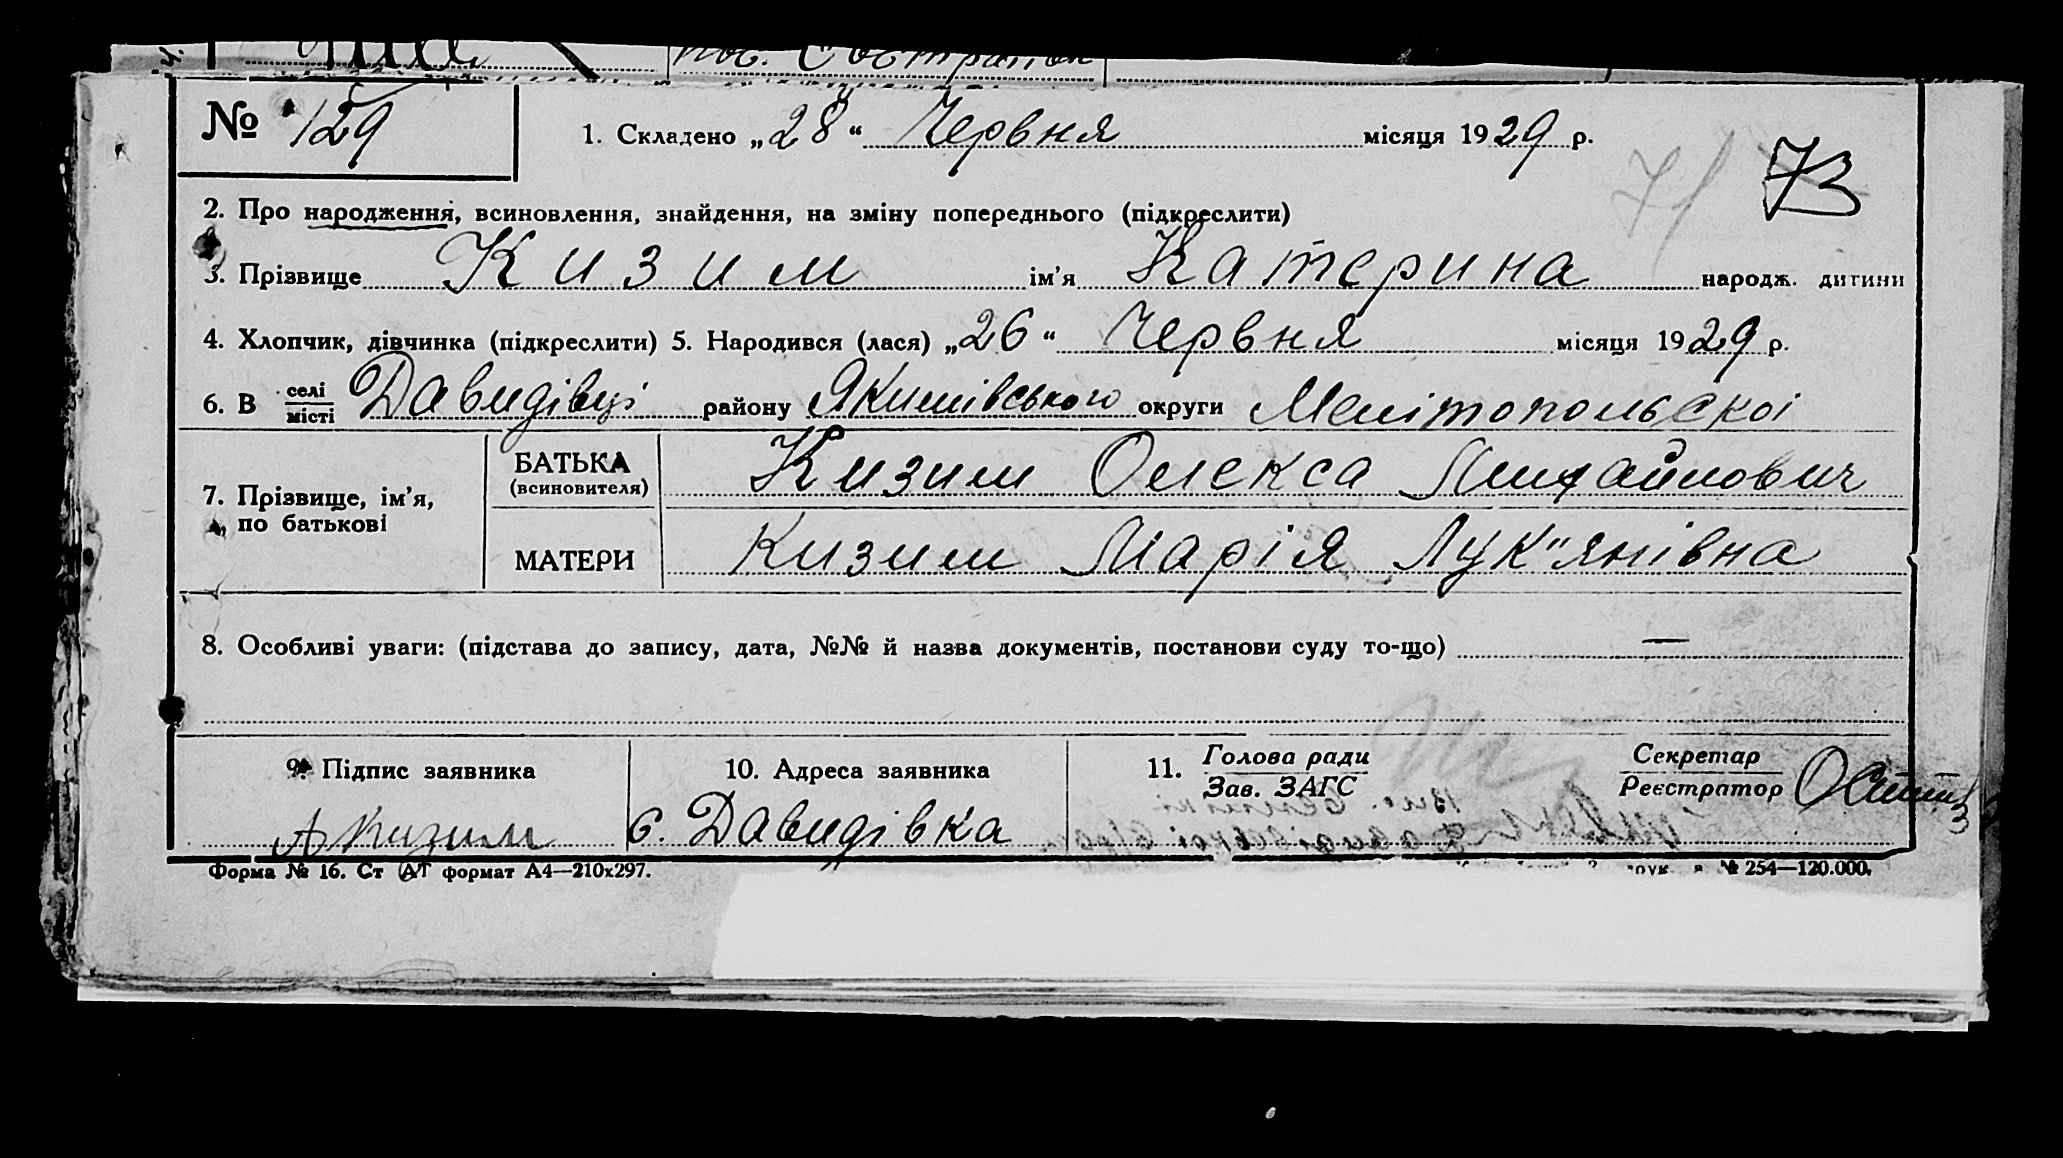 № 129
1. Складено „28“ Червня місяця 1929 р.
71 73
2. Про народження, всиновлення, знайдення, на зміну попереднього (підкреслити)
3. Прізвище Кизим ім’я Катерина народж. дитини
4. Хлопчик, дівчинка (підкреслити) 5. Народився (лася) „26“ Червня місяця 1929 р.
6. В селі
місті Давидівці району Якимівського округи Мелітопольскої
7. Прізвище, ім’я,
по батькові
БАТЬКА
(всиновителя)
Кизим Олекса Михайлович
МАТЕРИ
Кизим Марія Лук"янівна
8. Особливі уваги: (підстава до запису, дата, №№ й назва документів, постанови суду то-що) —
9. Підпис заявника
А Кизим
10. Адреса заявника
с. Давидівка
11. Голова ради
Зав. ЗАГС
Секретар
Реєстратор
Форма № 16. Ст АТ формат А4—210х297.
№ 254—120.000.